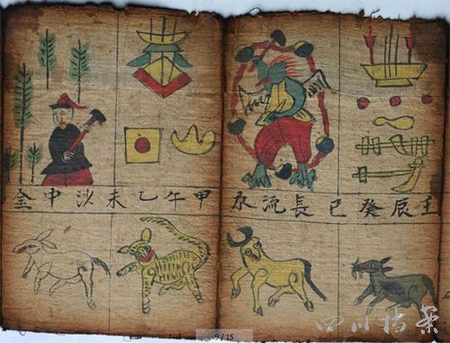 壬辰癸巳長流水
甲午乙未沙中金
9/15
四川档案